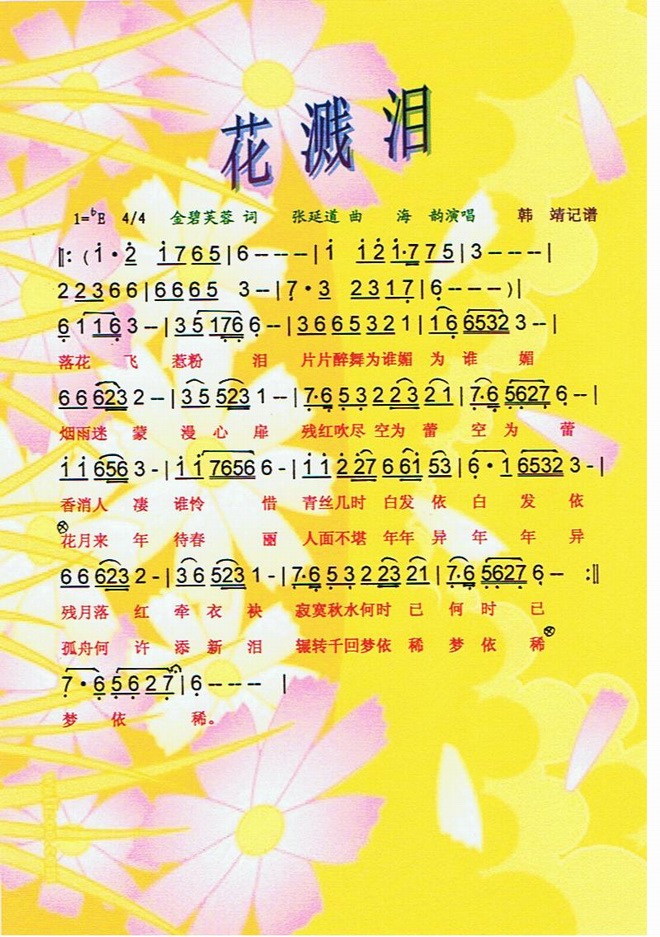 花溅泪
1=ᵇE 4/4 金碧芙蓉 词 张延道 曲 海 韵演唱 韩 靖记谱
‖: ( i · 2 1 7 6 5 | 6 - - - | i 1 2 1·7 7 5 | 3 - - - |
2 2 3 6 6 | 6 6 6 5 3 -- | 7 · 3 2 3 1 7 | 6 - - - ) |
6 1 1 6 3 -- | 3 5 176 6 -- | 3 6 6 5 3 2 1 | 1 6 6532 3 -- |
落花 飞 惹粉 泪 片片醉舞为谁媚 为 谁 媚
6 6 623 2 -- | 3 5 523 1 -- | 7·6 5 3 2 2 3 2 1 | 7·6 5627 6 -- |
烟雨迷 蒙 漫 心 扉 残红吹尽 空为 蕾 空 为 蕾
i i 656 3 - | i i 7656 6 - | i i 2 27 6 61 53 | 6 · 1 6532 3 - |
香消人 凄 谁怜 惜 青丝几时 白发 依 白 发 依
花月来 年 待春 丽 人面不堪 年年 异 年 年 异
6 6 623 2 - | 3 6 523 1 - | 7·6 5 3 2 23 21 | 7·6 5627 6 -- :‖
残月落 红 牵 衣 袂 寂寞秋水何时 已 何 时 已
孤舟何 许 添 新 泪 辗转千回梦依 稀 梦 依 稀
7 · 6 5 6 2 7 | 6 - - - |
梦 依 稀。